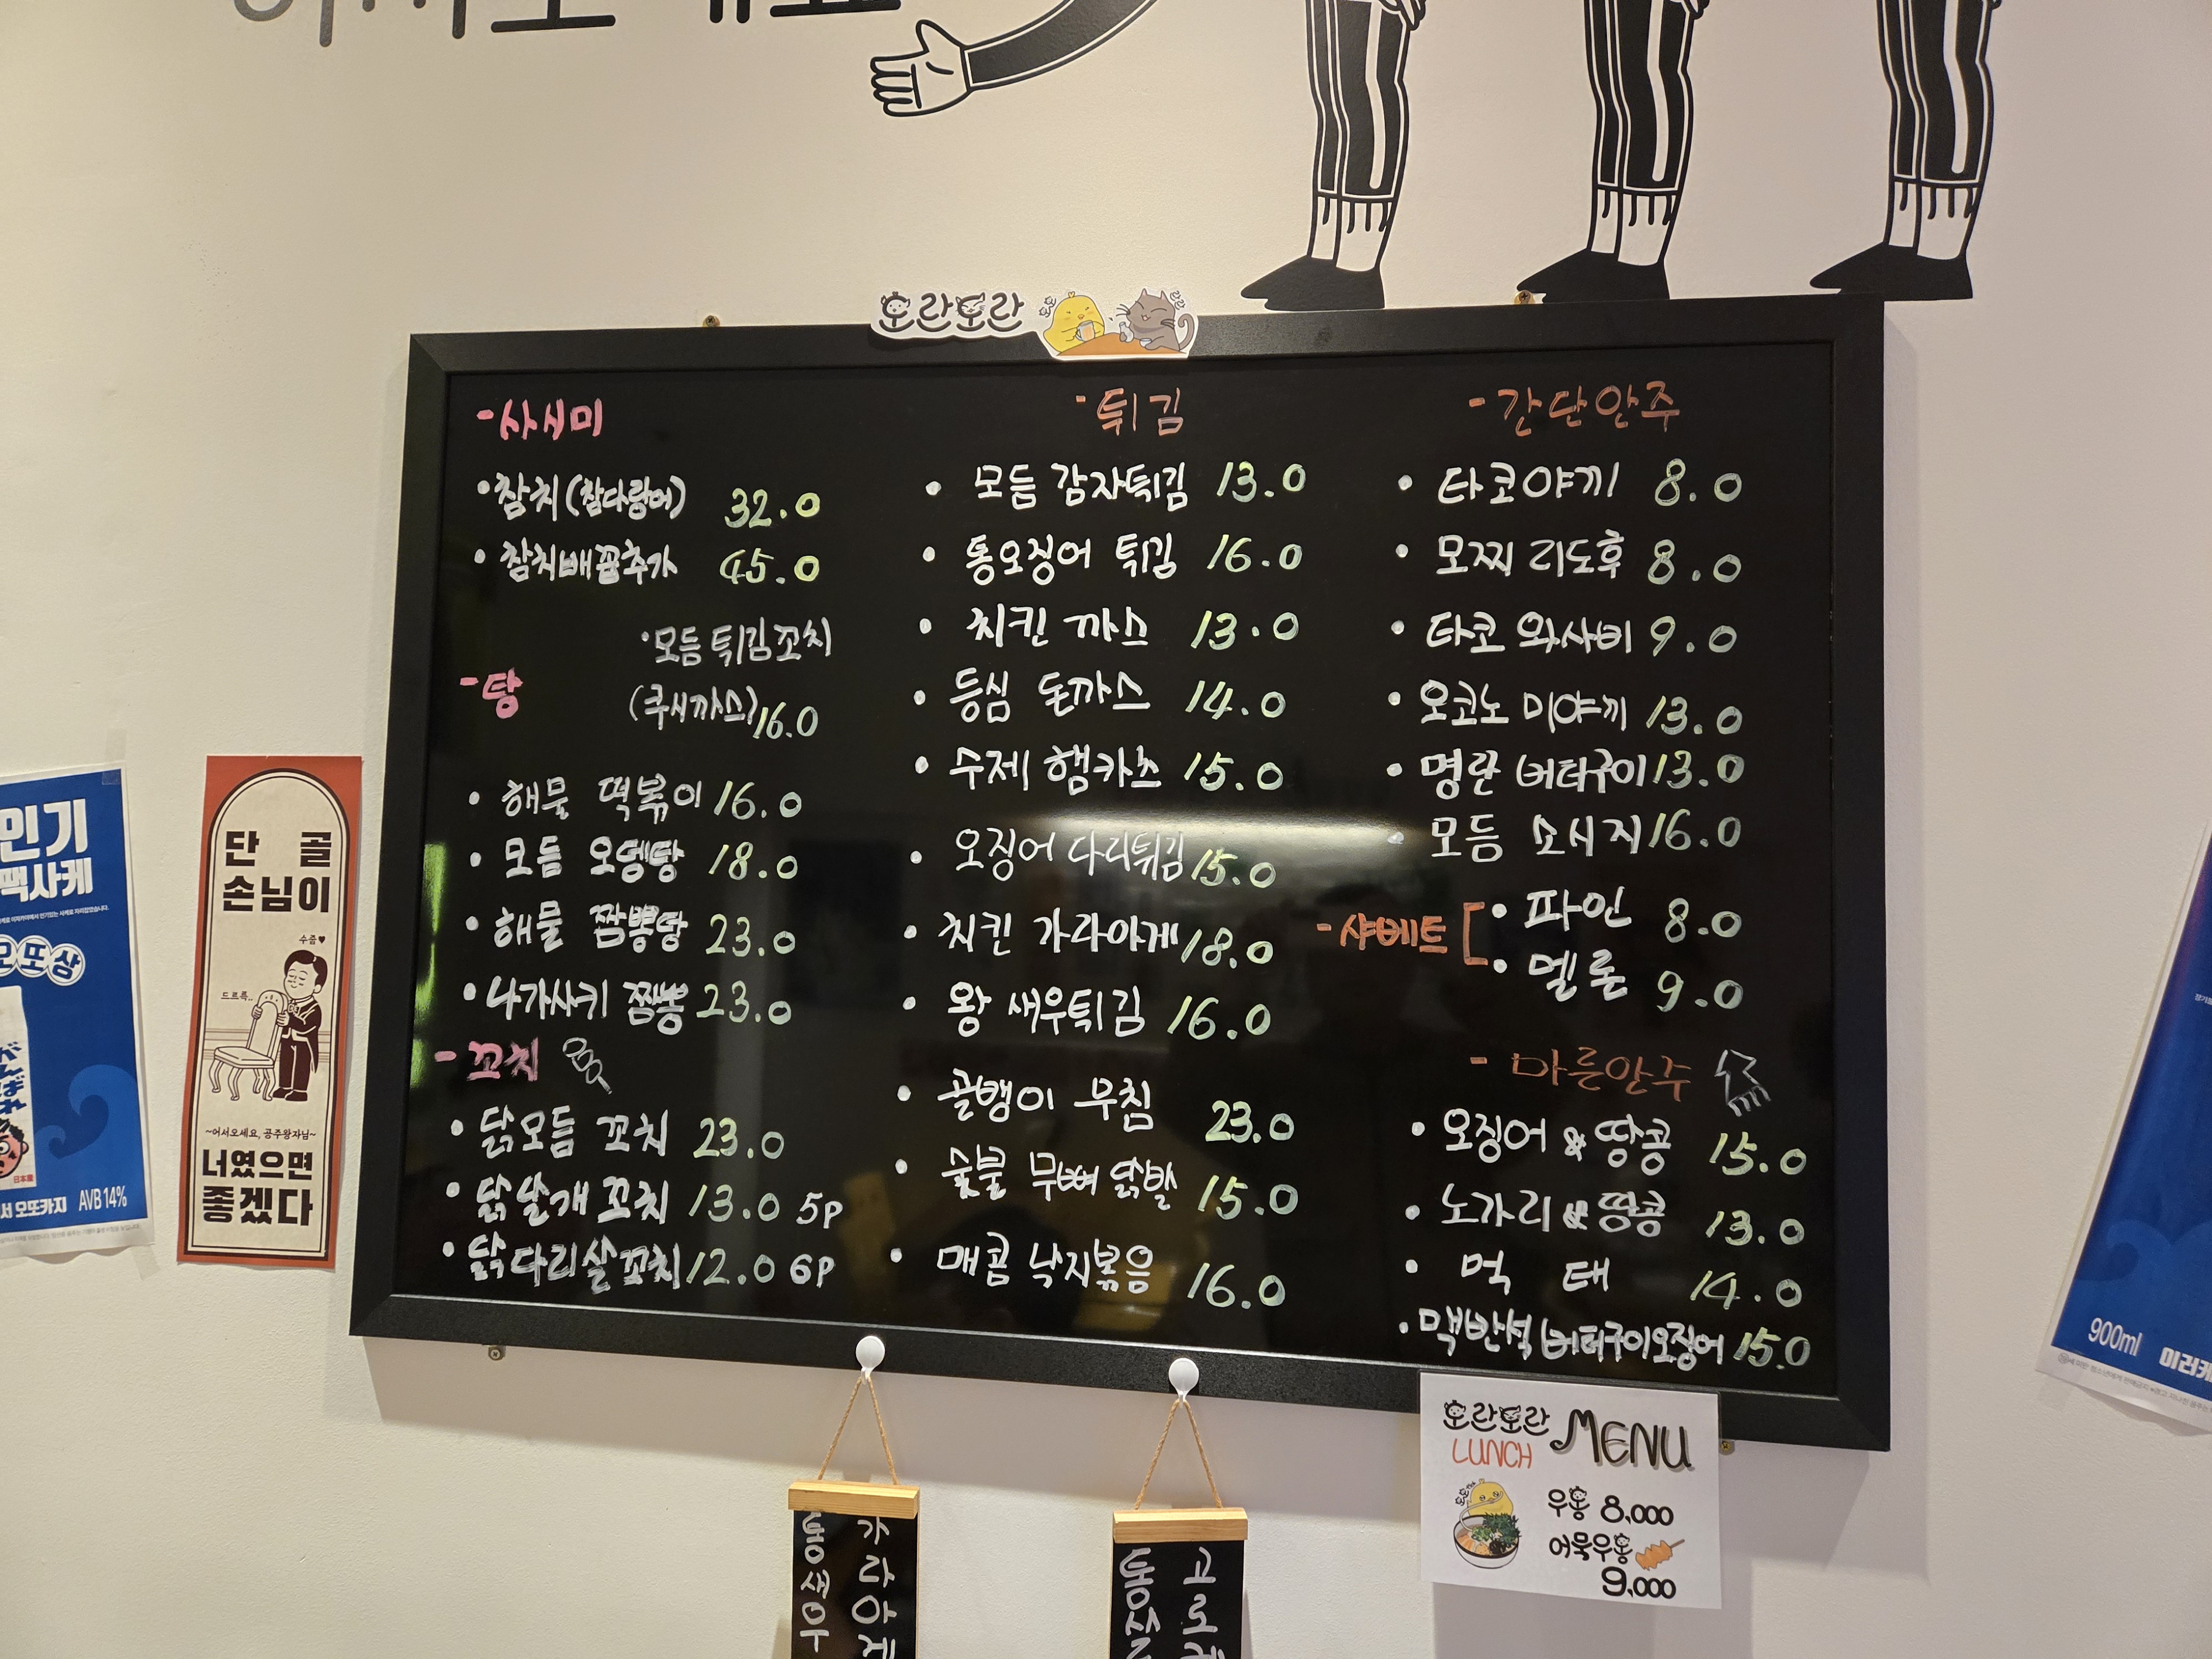 오란도란
-사시미
•참치(참다랑어) 32.0
•참치배꼽추가 45.0
•모듬 튀김꼬치
(쿠시까스) 16.0
-탕
•해물 떡볶이 16.0
•모듬 오뎅탕 18.0
•해물 짬뽕탕 23.0
•나가사키 짬뽕 23.0
-꼬치
•닭모듬 꼬치 23.0
•닭날개 꼬치 13.0 5P
•닭다리살꼬치 12.0 6P
-튀김
•모듬 감자튀김 13.0
•통오징어 튀김 16.0
•치킨 까스 13.0
•등심 돈까스 14.0
•수제 햄카츠 15.0
•오징어 다리튀김 15.0
•치킨 가라아게 18.0
•왕 새우튀김 16.0
•골뱅이 무침 23.0
•숯불 무뼈 닭발 15.0
•매콤 낙지볶음 16.0
-간단안주
•타코야끼 8.0
•모찌 리도후 8.0
•타코 와사비 9.0
•오코노 미야끼 13.0
•명란 버터구이 13.0
•모듬 소시지 16.0
-샤베트 [•파인 8.0
•멜론 9.0
-마른안주
•오징어 & 땅콩 15.0
•노가리 & 땅콩 13.0
•먹 태 14.0
•맥반석 버터구이오징어 15.0
인기
팩사케
오또상
日本産
서 오또카지 AVB 14%
단 골
손님이
수줍♥
드르륵..
~어서오세요, 공주왕자님~
너였으면
좋겠다
가라아게
통새우
고로케
통살
오란도란
LUNCH MENU
우동 8,000
어묵우동
9,000
900ml